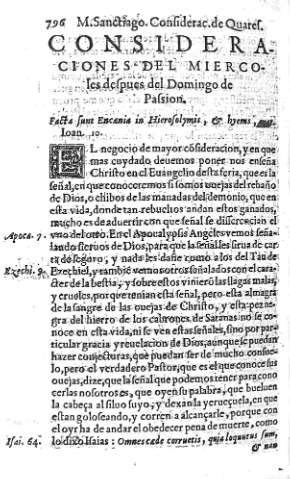 796 M. Sanctiago. Considerac. de Quares.
CONSIDERA-
CIONES DEL MIERCO-
les despues del Domingo de
Passion.
Facta sunt Encenia in Hierosolymis, & hyems
Ioan. 10.
EL negocio de mayor cōsideracion, y en que
mas cuydado deuemos poner nos enseña
Christo en el Euangelio desta feria, que es la
señal, en que conoceremos si somos ouejas del rebaño
de Dios, o chibos de las manadas del demonio, que en
esta vida, donde tan rebueltos andan estos ganados,
mucho es de aduertir con que señal se differencian el
Apoca. 7. vno del otro. En el Apocalypsi Angeles vemos seña-
lando sieruos de Dios, para que la señal les sirua de car
ta de seguro, y nada les dañe como a los del Tau de
Ezechi. 9. Ezechiel, y tambiē vemos otros señalados con el carac-
ter de la bestia, y sobre estos vinierō las llagas malas,
y crueles, porque tenian esta señal, pero esta almagra
de la sangre de las ouejas de Christo, y esta pez ne-
gra del hierro de los cabrones de Satanas no se co-
noce en esta vida, ni se ven estas señales, sino por par-
ticular gracia y reuelacion de Dios, aunque se puedan
hazer conjecturas, que puedan ser de mucho consue-
lo, pero el verdadero Pastor, que es el que conoce sus
ouejas, dize, que la señal que podemos tener para cono
cerlas nosotros es, que oyen su palabra, que bueluen
la cabeça al siluo suyo, y dexan la yeruezuela, en que
estan goloseando, y corren a alcançarle, porque con
el oyr ha de andar el obedecer pena de muerte, como
Isai. 64. lo dixo Isaias: Omnes cæde corruetis, quia loquutus sum,
& non